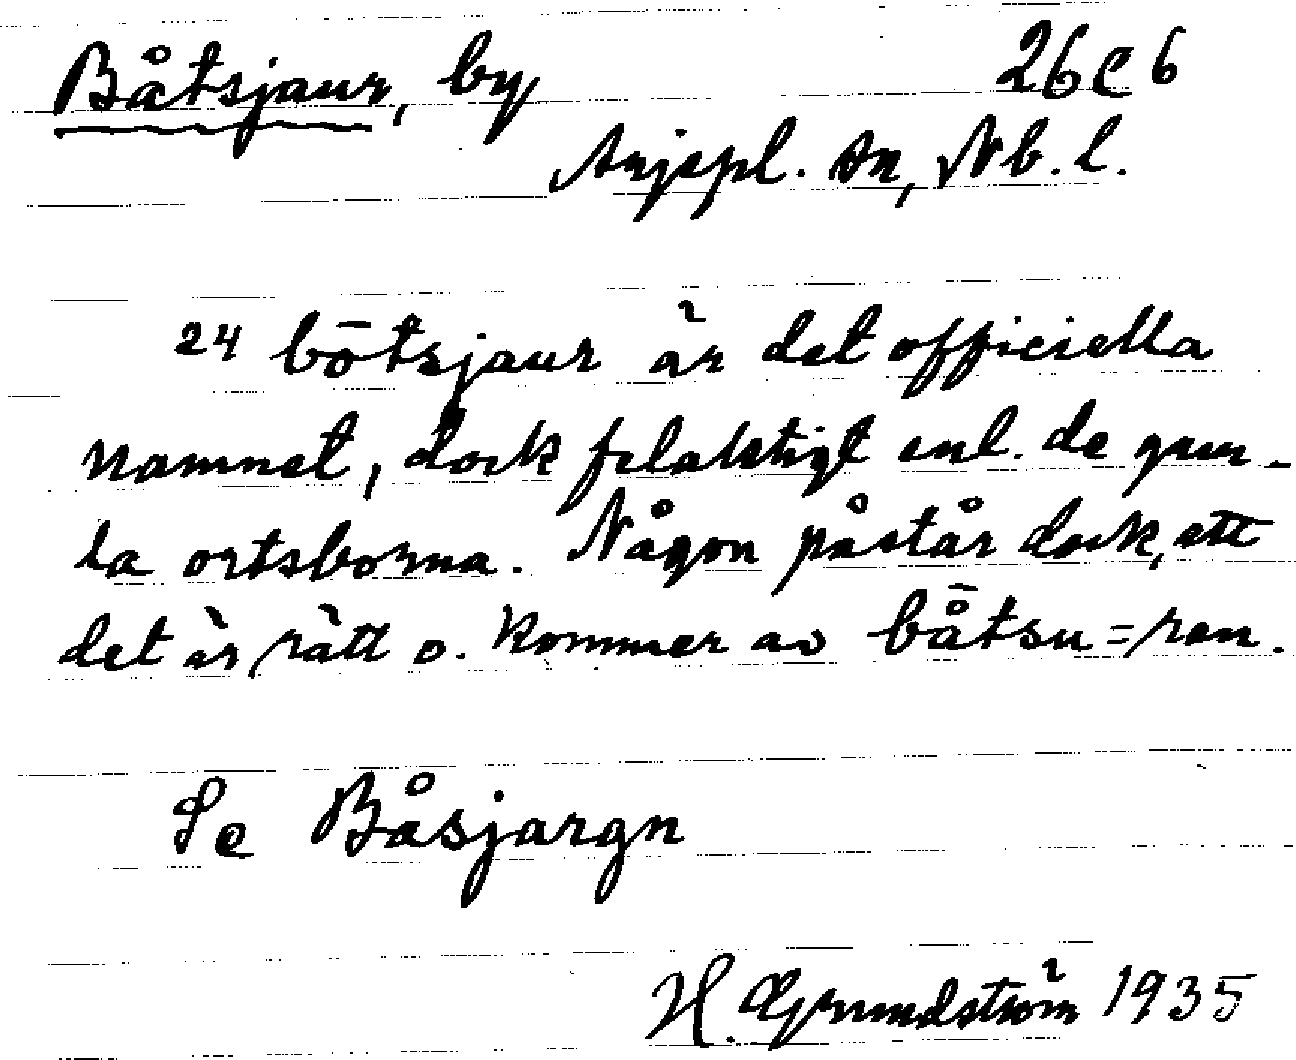 Båtsjaur, by 26 C 6
Arjepl. sn, Nb. l.
24 bōtsjaur är det officiella
namnet, dock felaktigt enl. de gam-
la ortsborna. Någon påstår dock, att
det är rätt o. kommer av bå̄tsu = ren.
Se Båsjargn
H. Grundström 1935